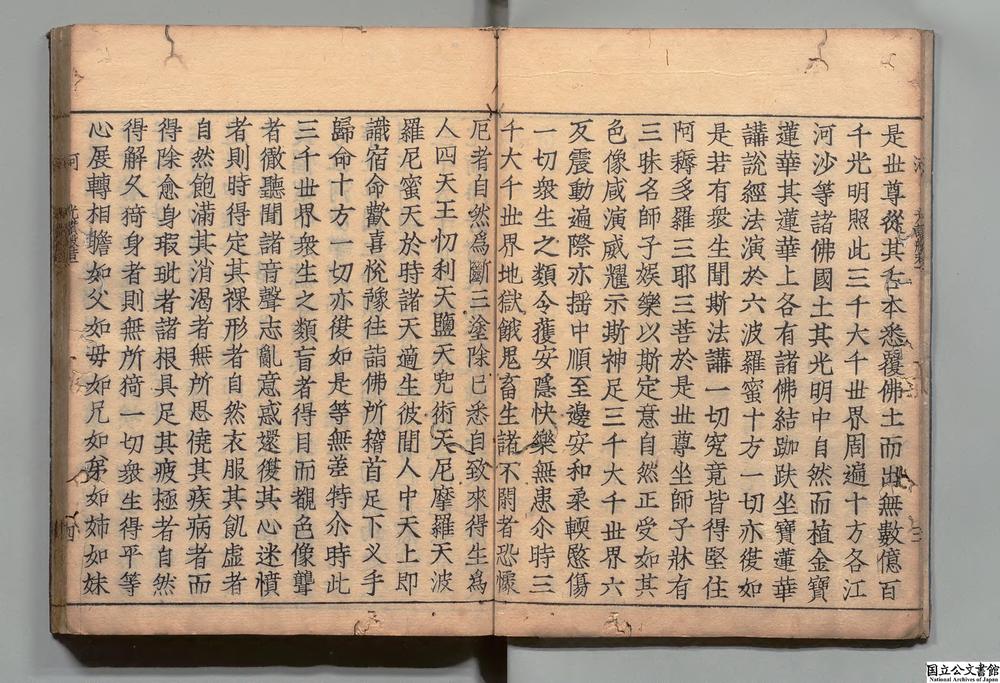 是世尊從其舌本悉覆佛土而出無數億百
千光明照此三千大千世界周遍十方各江
河沙等諸佛國土其光明中自然而植金寶
蓮華其蓮華上各有諸佛結跏趺坐寶蓮華
講說經法演於六波羅蜜十方一切亦復如
是若有衆生聞斯法講一切究竟皆得堅住
阿耨多羅三耶三菩於是世尊坐師子牀有
三昧名師子娛樂以斯定意自然正受如其
色像咸演威耀示斯神足三千大千世界六
反震動遍際亦揺中順至邊安和柔輭愍傷
一切衆生之類令獲安隱快樂無患尒時三
千大千世界地獄餓鬼畜生諸不閑者恐懅
厄者自然爲斷三塗除已悉自致來得生爲
人四天王忉利天鹽天兜術天尼摩羅天波
羅尼蜜天於時諸天適生彼間人中天上即
識宿命歡喜悅豫往詣佛所稽首足下叉手
歸命十方一切亦復如是等無差特尒時此
三千世界衆生之類盲者得目而覩色像聾
者徹聽聞諸音聲志亂意惑還復其心迷憒
者則時得定其裸形者自然衣服其飢虛者
自然飽滿其消渴者無所思僥其疾病者而
得除愈身瑕玼者諸根具足其疲極者自然
得解久猗身者則無所猗一切衆生得平等
心展轉相瞻如父如母如兄如弟如姉如妹
河
國立公文書館
National Archives of Japan